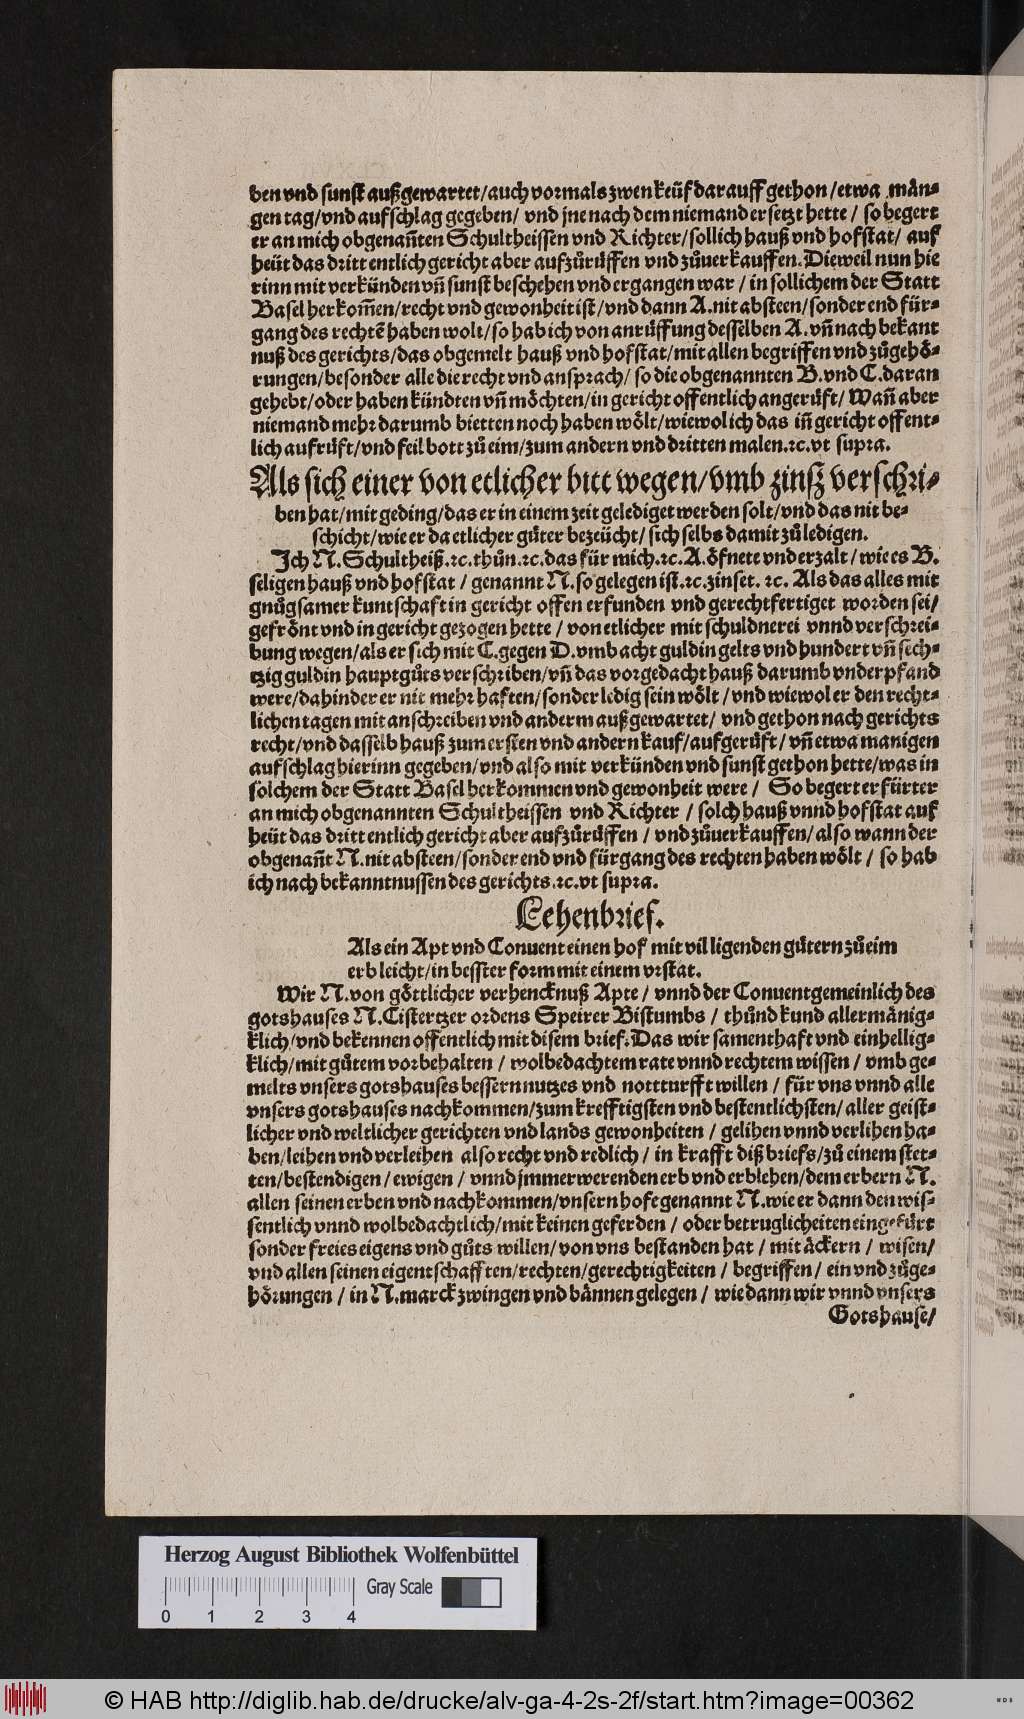 ben vnd sunst außgewartet/auch vormals zwen keüf darauff gethon/etwa män⸗
gen tag/vnd aufschlag gegeben/ vnd jne nach dem niemand ersetzt hette / so begert
er an mich obgenañten Schultheissen vnd Richter/sollich hauß vnd hofstat/ auf
heüt das dritt entlich gericht aber aufzůrůffen vnd zůuerkauffen. Dieweil nun hie
rinn mit verkünden vñ sunst beschehen vnd ergangen war / in sollichem der Statt
Basel herkom̃en/recht vnd gewonheit ist/vnd dann A.nit absteen/sonder end für⸗
gang des rechtẽ haben wolt/so hab ich von anrůffung desselben A.vñ nach bekant
nuß des gerichts/das obgemelt hauß vnd hofstat/mit allen begriffen vnd zůgehö⸗
rungen/besonder alle die recht vnd ansprach/ so die obgenannten B.vnd C.daran
gehebt/oder haben kündten vñ möchten/in gericht offentlich angerůft/ Wañ aber
niemand mehr darumb bietten noch haben wölt/wiewol ich das iñ gericht offent⸗
lich aufrůft/vnd feil bott zů eim/zum andern vnd dritten malen.ꝛc.vt supra.
Als sich einer von etlicher bitt wegen/vmb zinß verschri⸗
ben hat/mit geding/das er in einem zeit gelediget werden solt/vnd das nit be⸗
schicht/wie er da etlicher gůter bezeücht/sich selbs damit zů ledigen.
Ich N.Schultheiß.ꝛc.thůn.ꝛc.das für mich.ꝛc.A.öfnete vnd erzalt/wie es B.
seligen hauß vnd hofstat / genannt N.so gelegen ist.ꝛc.zinset. ꝛc. Als das alles mit
gnůgsamer kuntschaft in gericht offen erfunden vnd gerechtfertiget worden sei/
gefrönt vnd in gericht gezogen hette / von etlicher mit schuldnerei vnnd verschrei⸗
bung wegen/als er sich mit C.gegen D.vmb acht guldin gelts vnd hundert vñ sech⸗
tzig guldin hauptgůts verschriben/vñ das vorgedacht hauß darumb vnderpfand
were/dahinder er nit mehr haften/sonder ledig sein wölt/vnd wiewol er den recht⸗
lichen tagen mit anschreiben vnd anderm außgewartet/ vnd gethon nach gerichts
recht/vnd dasselb hauß zum ersten vnd andern kauf/aufgerůft/vñ etwa manigen
aufschlag hierinn gegeben/vnd also mit verkünden vnd sunst gethon hette/was in
solchem der Statt Basel herkommen vnd gewonheit were / So begert er fürter
an mich obgenannten Schultheissen vnd Richter / solch hauß vnnd hofstat auf
heüt das dritt entlich gericht aber aufzůrůffen / vnd zůuerkauffen/also wann der
obgenañt N.nit absteen/sonder end vnd fürgang des rechten haben wölt / so hab
ich nach bekanntnussen des gerichts.ꝛc.vt supra.
Lehenbrief.
Als ein Apt vnd Conuent einen hof mit vil ligenden gütern zů eim
erb leicht/in besster form mit einem vrstat.
Wir N.von göttlicher verhencknuß Apte / vnnd der Conuent gemeinlich des
gotshauses N.Cistertzer ordens Speirer Bistumbs / thůnd kund allermänig⸗
klich/vnd bekennen offentlich mit disem brief.Das wir samenthaft vnd einhellig⸗
klich/mit gůtem vorbehalten / wolbedachtem rate vnnd rechtem wissen / vmb ge⸗
melts vnsers gotshauses bessern nutzes vnd nottturfft willen / für vns vnnd alle
vnsers gotshauses nachkommen/zum krefftigsten vnd bestentlichsten/aller geist⸗
licher vnd weltlicher gerichten vnd lands gewonheiten / gelihen vnnd verlihen ha⸗
ben/leihen vnd verleihen also recht vnd redlich / in krafft diß briefs/zů einem stet⸗
ten/bestendigen/ewigen / vnnd jmmerwerenden erb vnd erblehen/dem erbern N.
allen seinen erben vnd nachkommen/vnsern hofe genannt N.wie er dann den wis⸗
sentlich vnnd wolbedachtlich/mit keinen geferden / oder betruglicheiten eingefürt
sonder freies eigens vnd gůts willen/von vns bestanden hat / mit äckern / wisen/
vnd allen seinen eigentschafften/rechten/gerechtigkeiten / begriffen / ein vnd zůge⸗
hörungen / in N.marck zwingen vnd bännen gelegen / wie dann wir vnnd vnsers
Gotshause/
Herzog August Bibliothek Wolfenbüttel
Gray Scale
0 1 2 3 4
© HAB http://diglib.hab.de/drucke/alv-ga-4-2s-2f/start.htm?image=00362